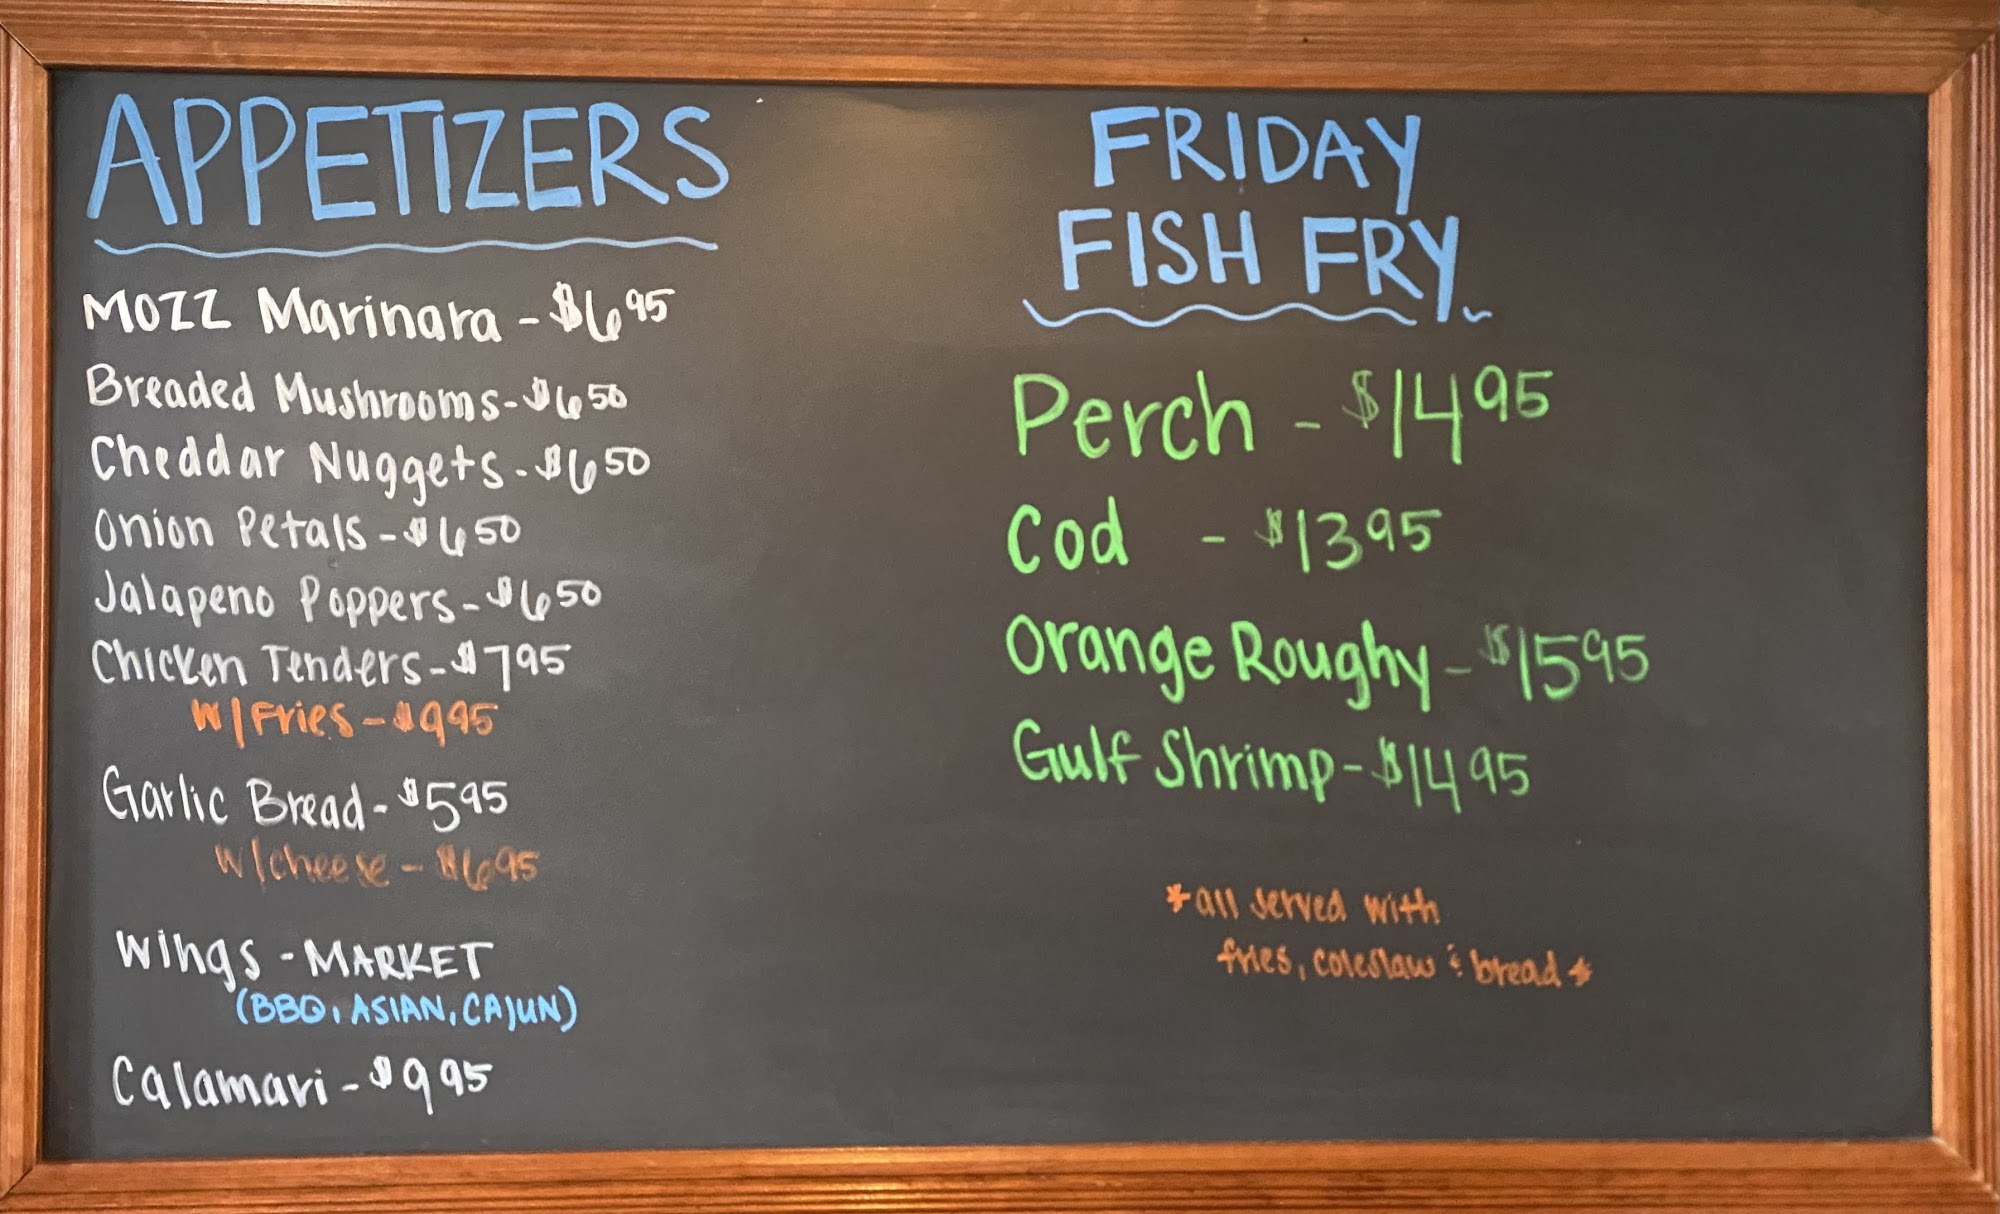 APPETIZERS
MOZZ Marinara - $6 95
Breaded Mushrooms - $6 50
Cheddar Nuggets - $6 50
Onion Petals - $6 50
Jalapeno Poppers - $6 50
Chicken Tenders - $7 95
W/Fries - $9 95
Garlic Bread - $5 95
W/Cheese - $6 95
Wings - MARKET
(BBQ, ASIAN, CAJUN)
Calamari - $9 95
FRIDAY
FISH FRY
Perch - $14 95
Cod - $13 95
Orange Roughy - $15 95
Gulf Shrimp - $14 95
*all served with
fries, coleslaw & bread*